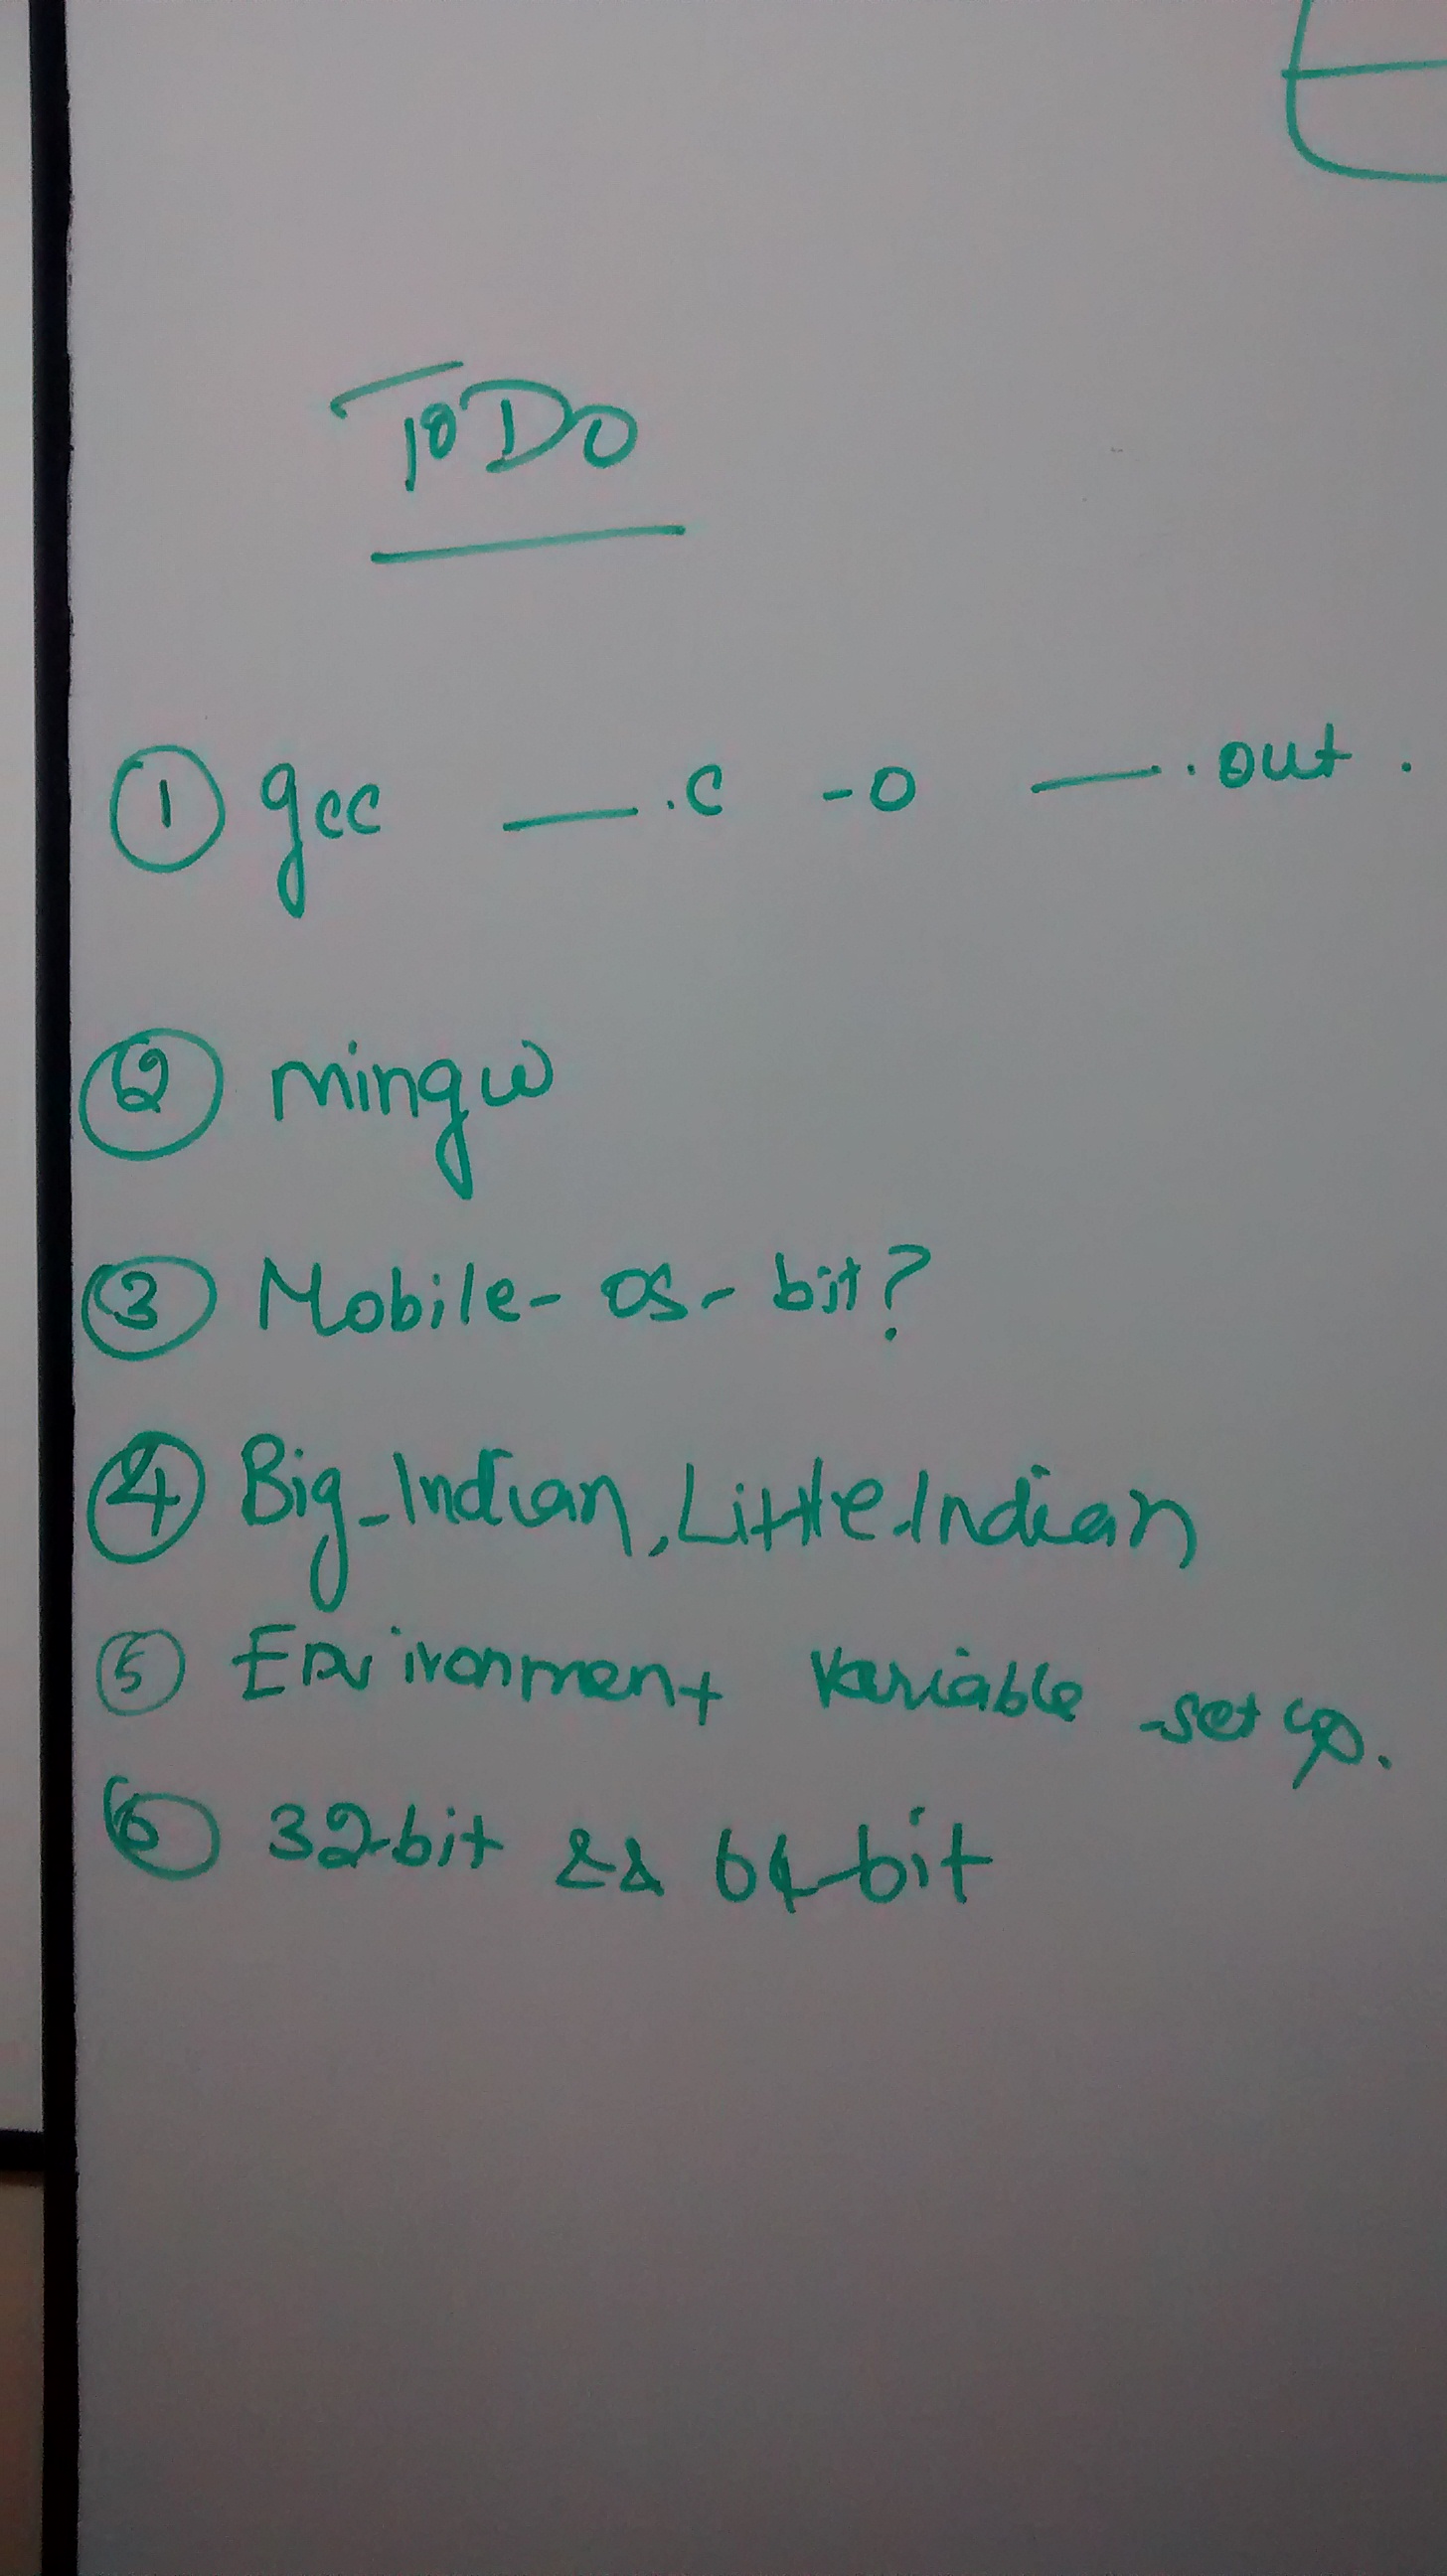 ToDo
① gcc ___.c -o ___.out.
② mingw
③ Mobile-os-bit?
④ Big-Indian, Little-Indian
⑤ Environment Variable -set up.
⑥ 32-bit && 64-bit